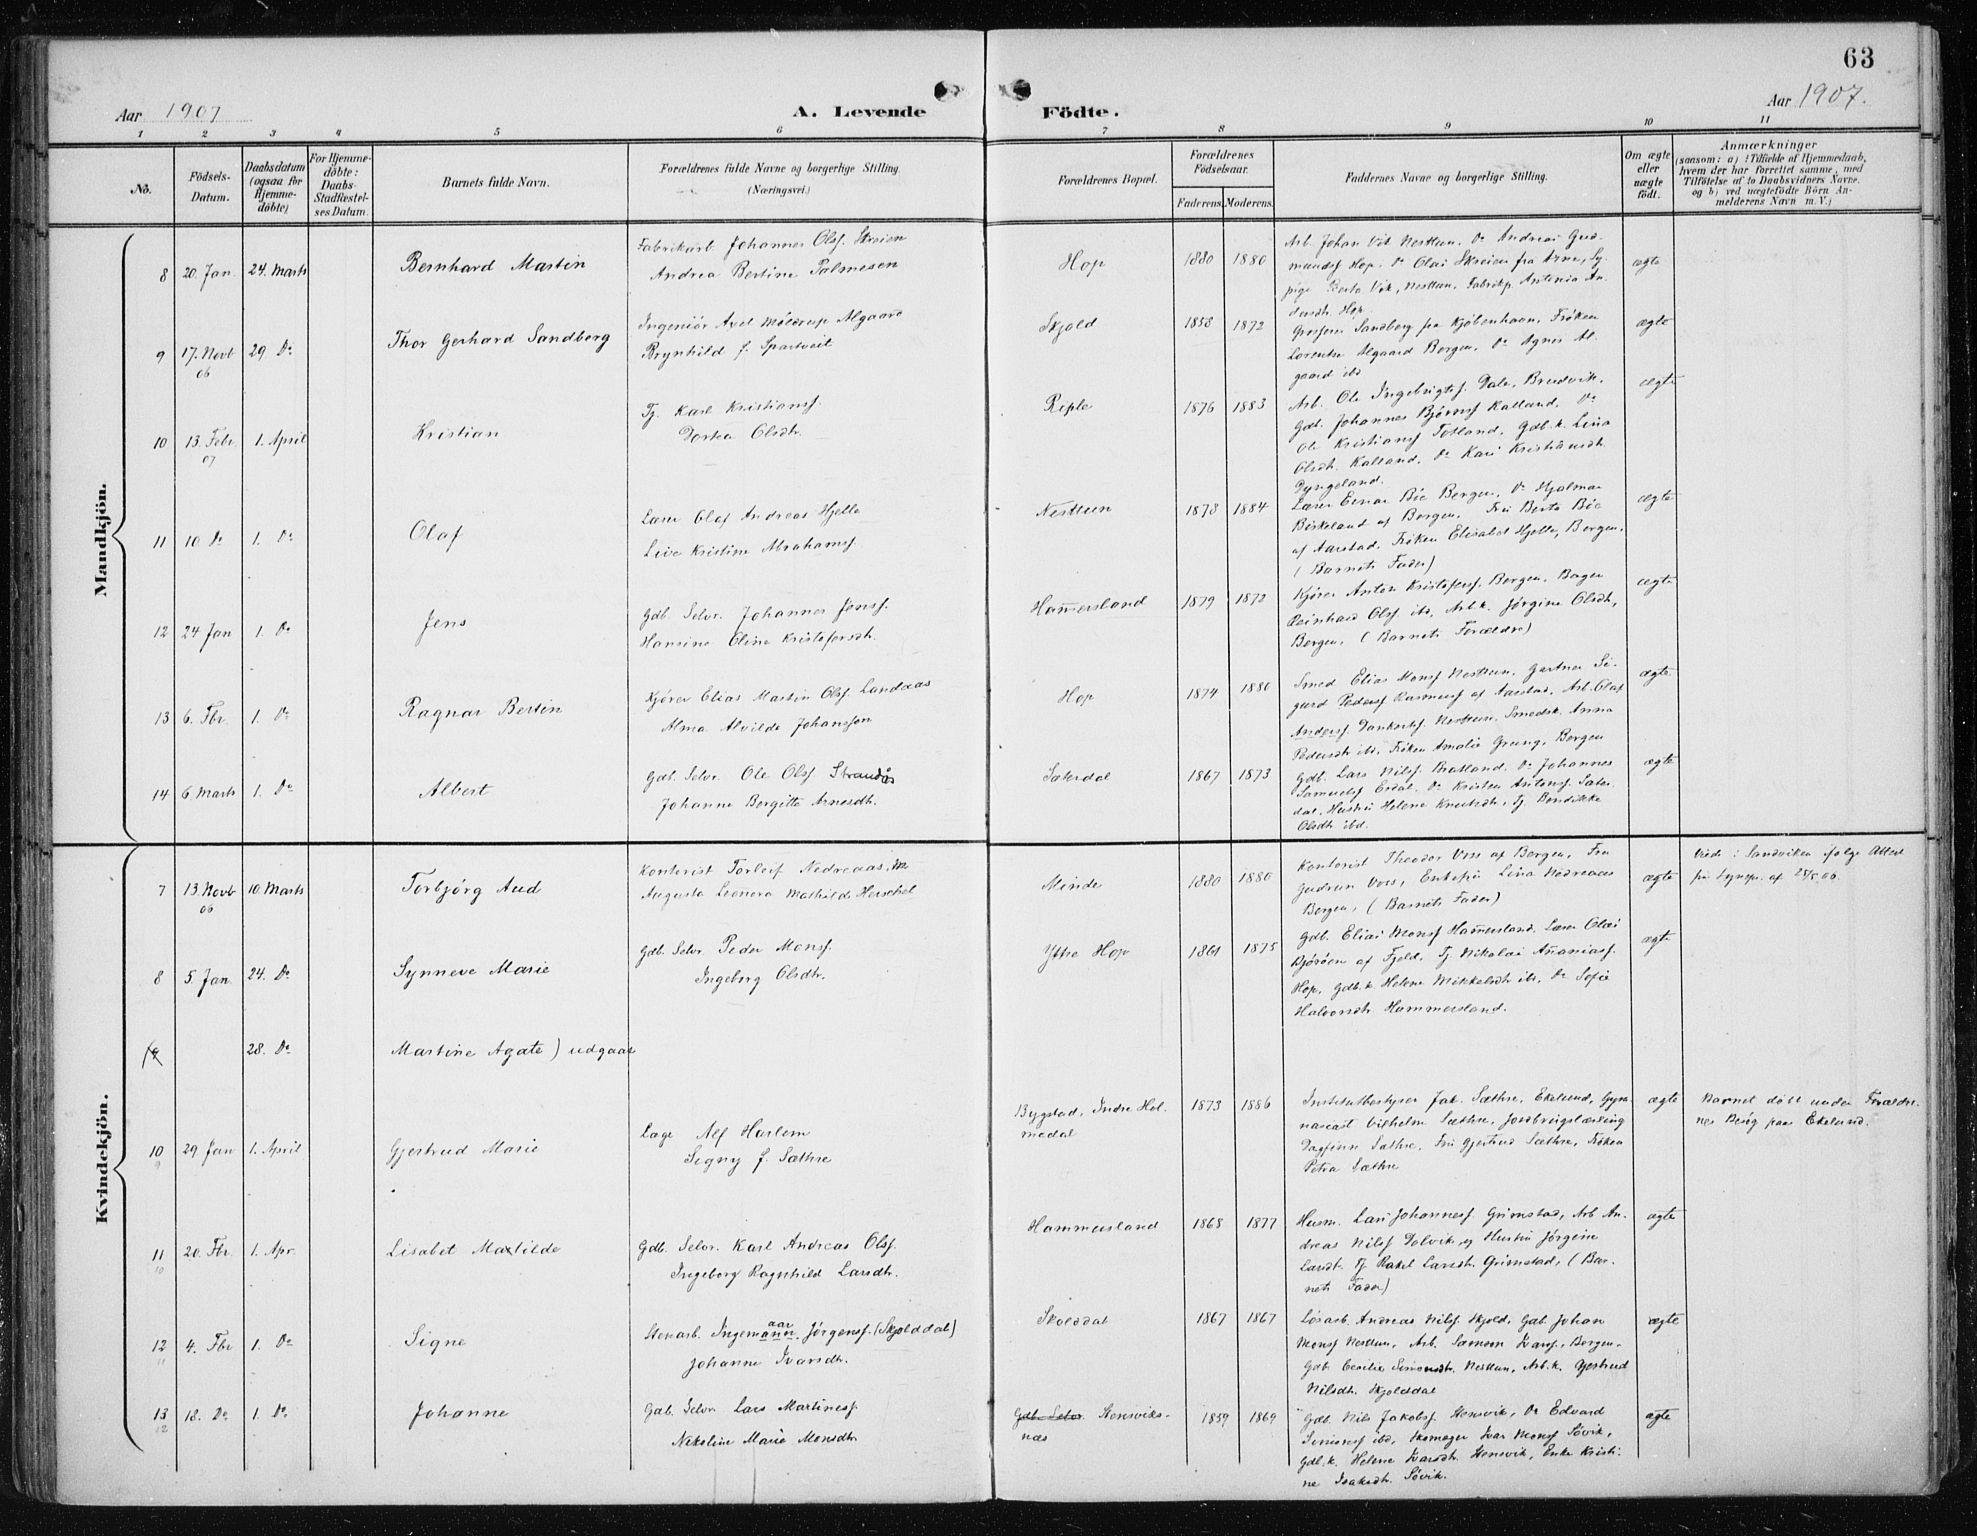 63
Aar 1907
A. Levende Födte.
Aar 1907.
1 2 3 4 5 6 7 8 9 10 11
No.
Födsels-
Datum.
Daabsdatum
(ogsaa for
Hjemme-
döbte)
For Hjemme-
döbte:
Daabs-
Stadfæstel-
ses Datum.
Barnets fulde Navn.
Forældrenes fulde Navne og borgerlige Stilling.
(Næringsvei.)
Forældrenes Bopæl.
Forældrenes
Födselsaar.
Faderens. Moderens.
Faddernes Navne og borgerlige Stilling.
Om ægte
eller
uægte
födt.
Anmærkninger
(saasom: a) i Tilfælde af Hjemmedaab,
hvem der har forrettet samme, med
Tilföielse af to Daabsvidners Navne.
og b) ved uægtefödte Börn An-
melderens Navn m. V.)
Mandkjön.
8 20. Jan. 24. Marts Bernhard Martin
Fabrikarb Johannes Olsf. Skreien
Andrea Bertine Palmesen
Hop 1880 1880
Arb. Johan Vik Nesttun. Do Andreas Gud-
mundsf Hop. Do Olai Skreien fra Arne, Sy-
pige Berta Vik, Nesttun, Fabrikp. Antonia An-
dersdh. Hop.
ægte
9 17. Novb 06 29 Do Thor Gerhard Sandberg
Ingeniör Axel Möldrup Algaard
Brynhild f. Spartveit
Skjold 1858 1872
Grosserer Sandberg fra Kjöbenhavn, Fröken
Lorentse Algaard Bergen, Do Agnes Al-
gaard ibd
ægte
10 13. Febr 07 1. April Kristian
Tj. Karl Kristiansf.
Dortea Olsdh.
Riple 1876 1883
Arb. Ole Ingebrigtsf. Dale, Bruvik,
Gdb. Johannes Björnsf Kalland. Do
Ole Kristiansf Totland, Gdb.k. Lina
Olsdh. Kalland, Do Kari Kristiansdh
Dyngeland.
ægte
11 10 Do 1. Do Olaf
Lærer Olaf Andreas Hjelle
Live Kristine Abrahamsf.
Nesttun 1878 1884
Lærer Einar Böe Bergen, Do Hjalmar
Birkeland af Bergen, Fru Berta Böe
af Aarstad, Fröken Elisabet Hjelle, Bergen,
(Barnets Fader)
ægte
12 24 Jan 1. Do Jens
Gdb. Selvr. Johannes Jensf.
Hansine Oline Kristofersdh.
Ham̄ersland 1879 1872
Kjörer Anton Kristofersf. Bergen. Bager
Reinhard Olsf ibd, Arb.k. Jörgine Olsdh,
Bergen, (Barnets Forældre)
ægte
13 6. Fbr. 1. Do Ragnar Bertin
Kjörer Elias Martin Olsf. Landaas
Alma Alvilde Johansson
Hop 1874 1880
Smed Elias Monsf Nesttun, Gartner Si-
gurd Pedersf Rasmusf af Aarstad, Arb. Olaf
Andersf Dankertsf. Nesttun. Smedsk. Anna
Pedersdh ibd, Fröken Amalie Greung, Bergen
ægte
14 6. Marts 1. Do Albert
Gdb. Selvr. Ole Olsf Strandås
Johanne Bergitte Arnesdh.
Sæterdal 1867 1873
Gdb. Lars Nilsf. Bratland. Do Johannes
Samuelsf Erdal. Do Kristen Antonsf. Sæter-
dal, Hustru Helene Knutsdh, Tj. Bendikke
Olsdh ibd.
ægte
Kvindekjön.
7 13 Novb 06 10. Marts Torbjörg Aud
Kontorist Torleif Nedreaas, M
Augusta Leonora Mathilde Herschel
Minde 1880 1880
Kontorist Theodor Voss af Bergen, Fru
Gudrun Voss, Enkefru Lina Nedreaas
Bergen, (Barnets Fader)
ægte
Sandviken ifölge Attest
8 5. Jan 24. Do Synneve Marie
Gdb. Selvr. Peder Monsf.
Ingeborg Olsdh.
Ytre Hop 1861 1875
Gdb. Elias Monsf Ham̄ersland, Lærer Olai
Björöen af Fjeld, Tj. Nikolai Ananiasf.
Hop, Gdb.k. Helene Mikkelsdh ibd, Do Sofie
Halvorsdh. Hammersland.
ægte
(9 28. Do Martine Agate) udgaar
10 9 29 Jan 1. April Gjertrud Marie
Læge Alf Harlem
Signy f. Sæthre
Bygstad, Indre Hol-
medal
1873 1886
Institutbestyrer Jak. Sæthre, Ekelund, Gym-
nasiast Vilhelm Sæthre, Jordbrugslærling
Dagfinn Sæthre, Fru Gjertrud Sæthre, Fröken
Petra Sæthre
ægte
Barnet döbt under Forældre-
nes Besög paa Ekelund.
11 10 20. Fbr. 1. Apr. Lisabet Matilde
Gdb. Selvr. Karl Andreas Olsf.
Ingeborg Ragnhild Larsdh.
Hammersland 1868 1877
Husm. Lars Johannesf Grimstad, Arb An-
dreas Nilsf Dolvik og Hustru Jörgine
Larsdh. Tj Rakel Larsdh. Grimstad, (Bar-
nets Fader)
ægte
12 11 4. Fbr 1. Do Signe
Stenarb. Ingemann aar Jörgensf. (Skjolddal)
Johanne Ivarsdh.
Skolddal 1867 1867
Lösarb. Andreas Nilsf Skjold, Gdb Johan
Monsf Nesttun, Arb. Samson Ivarsf., Bergen.
Gdb. Cecilie Simonsdh. Nesttun, Arb.k. Gjertrud
Nilsdh. Skjolddal
ægte
13 12 18. Do 1. Do Johanne
Gdb. Selvr. Lars Martinesf
Nikoline Marie Monsdh
Gdb. Selvr Stensviks-
næs
1859 1869
Gdb. Nils Jakobsf. Stensvik, Do Edvard
Simonsf ibd, Skomager Ivar Monsf Sövik,
Gdb.k. Helene Ivarsdh. Stensvik, Enke Kristi-
ne Isaksdh. Sövik.
ægte